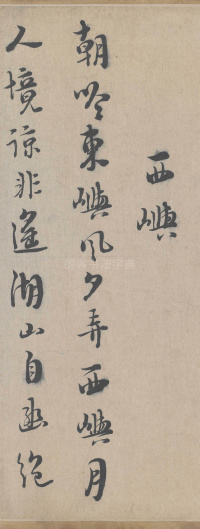 西嶼
朝吟東嶼風夕弄西嶼月
人境諒非遥湖山自幽絶